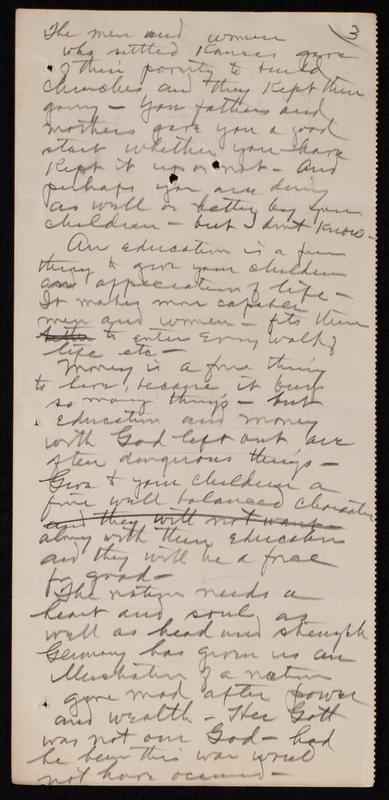 3
The men and women
who sittled Kansas gave
of their poverty to build
churches and they Kept them
going – Your fathers and
mothers gave you a good
start whether you have
Kept it up or not – And
perhaps you are doing
as well or better by your
children – but I don't Know –
An education is a fine
thing to give your children
an appreciation of life –
It makes more capable
men and women – fits them
to enter every walk of
life etc –
Money is a fine thing
to have, because it buys
so many things – but
education and money
with God left out are
often dangerous things –
Give to your children a
fine well balanced character
and they will not want
along with their education
and they will be a force
for good –
The nation needs a
heart and soul as
well as head and strength
Germany has given us an
illustration of a nation
gone mad after power
and wealth – Her Gott
was not our God – had
he been this war would
not have occured –